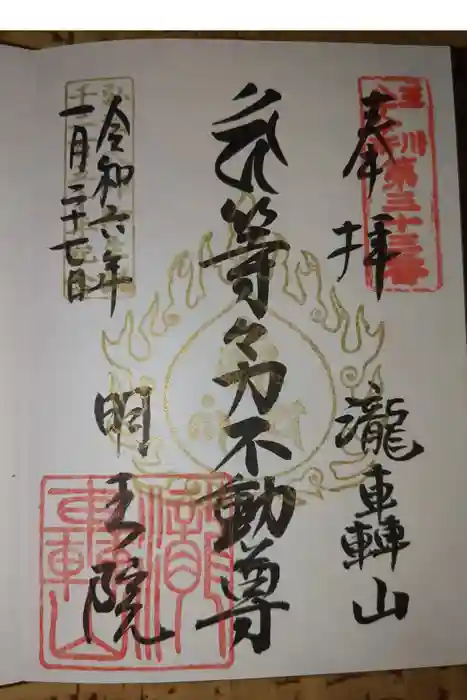 玉川第三十三番
奉拝
瀧轟山
等々力不動尊
令和六年
一月二十七日
明王院
瀧轟山